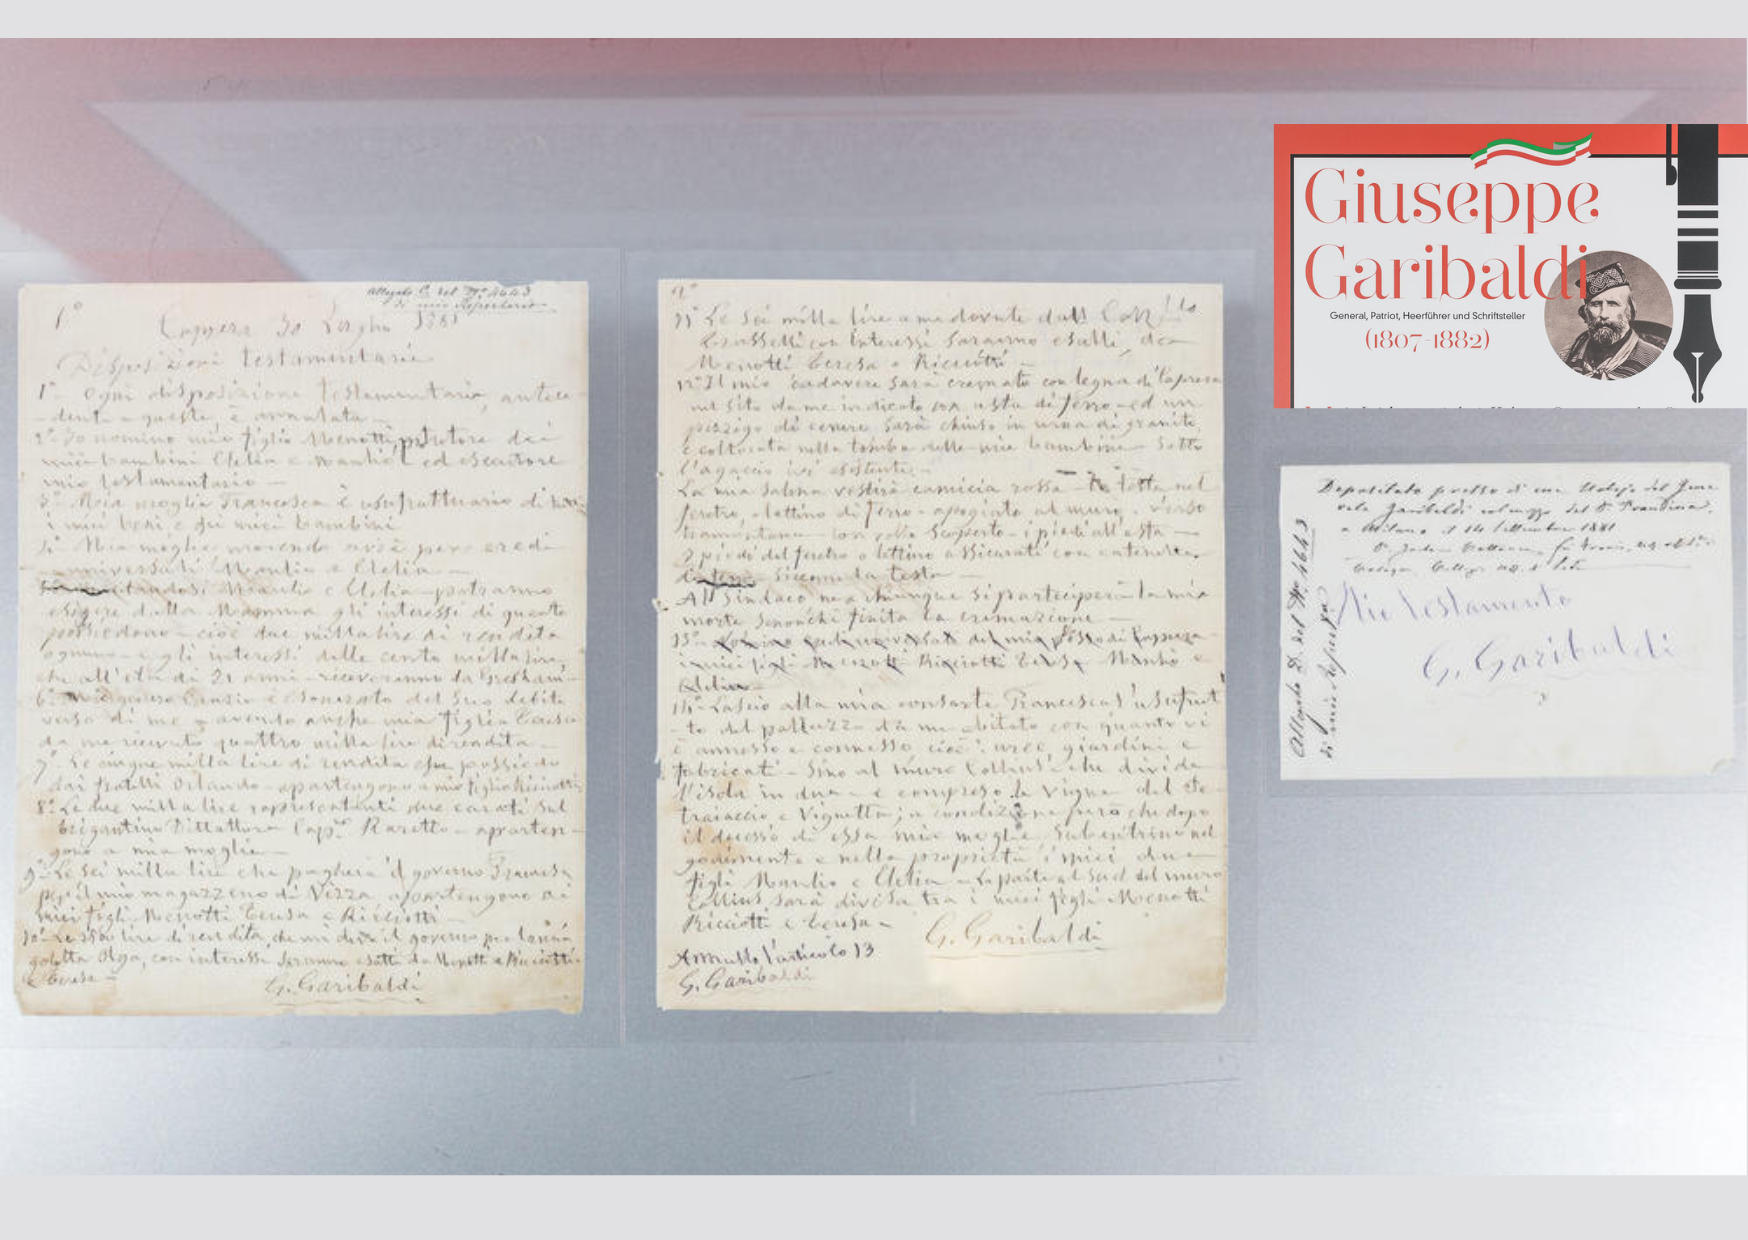 1°
Allegato C. del N° 4643
di mio Repertorio
Caprera 30 Luglio 1881
Disposizioni testamentarie
1° Ogni disposizione testamentaria, antece-
-dente a queste, è annullata
2° Io nomino mio figlio Menotti, tutore dei
miei bambini Clelia e Manlio ed esecutore
mio testamentario -
3° Mia moglie Francesca è usufruttuaria di
i miei beni e dei miei bambini
Mia moglie morendo avrà per eredi
universali Manlio e Clelia -
Manlio e Clelia potranno
esigere dalla Mamma gli interessi di quanto
possiedono - cioè due milla lire di rendita
ognuno e gli interessi delle cento milla lire,
che all'età di 21 anni - riceveranno da Gresham -
6° Canzio è esonerato del suo debito
verso di me - avendo anche mia figlia Teresa
da me ricevuto quattro milla lire di rendita -
7° Le cinque milla lire di rendita che possiedo
dai fratelli Orlando - appartengono a mio figlio Ricciotti
8° Le due milla lire rappresentanti due carati sul
brigantino Dittatore Cap° - apparten-
gono a mia moglie -
9° Le sei milla lire che pagherà il governo Francese
pel mio magazzeno di Nizza appartengono ai
miei figli Menotti Teresa e Ricciotti -
10° Le lire di rendita, che mi deve il governo per la
goletta Olga, con interessi saranno esatti da Menotti e Ricciotti
e Teresa -
G. Garibaldi
2°
11° Le sei milla lire a me dovute dall
con interessi saranno esatti, da
Menotti Teresa e Ricciotti -
12° Il mio cadavere sarà cremato con legna di Caprera
nel sito da me indicato con asta di ferro - ed un
pizzigo di cenere sarà chiuso in urna di granito,
e collocata nella tomba delle mie bambine - sotto
l'agaccio ivi esistente -
La mia salma vestirà camicia rossa - la testa nel
feretro, o lettino di ferro - apogiata al muro, verso
tramontana - con volto scoperto - i piedi all'asta -
I piedi del feretro o lettino assicurati con catenelle
siccome la testa -
Al Sindaco ne a chiunque si parteciperà la mia
morte senonchè finita la cremazione -
13°
i miei figli Menotti Ricciotti Teresa Manlio e
Clelia -
14° Lascio alla mia consorte Francesca l'usufrut
-to del palazzo da me abitato con quanto vi
è annesso e connesso cioè: aree, giardini e
fabricati - Sino al muro Collins, che divide
l'isola in due - e compreso la vigna del
e Vignetta; a condizione però che dopo
il decesso di essa mia moglie, subentrino nel
godimento e nella proprietà i miei due
figli Manlio e Clelia - la parte al Sud del muro
Collins sarà divisa tra i miei figli Menotti
Ricciotti e Teresa -
G. Garibaldi
Annullo l'articolo 13
G. Garibaldi
Giuseppe
Garibaldi
General, Patriot, Heerführer und Schriftsteller
(1807-1882)
Depositato presso di me Notajo dal Gene
rale Garibaldi col mezzo del
a Milano il 14 Settembre 1881
Allegato D. del N° 4643
di mio Repertorio
Mio Testamento
G. Garibaldi